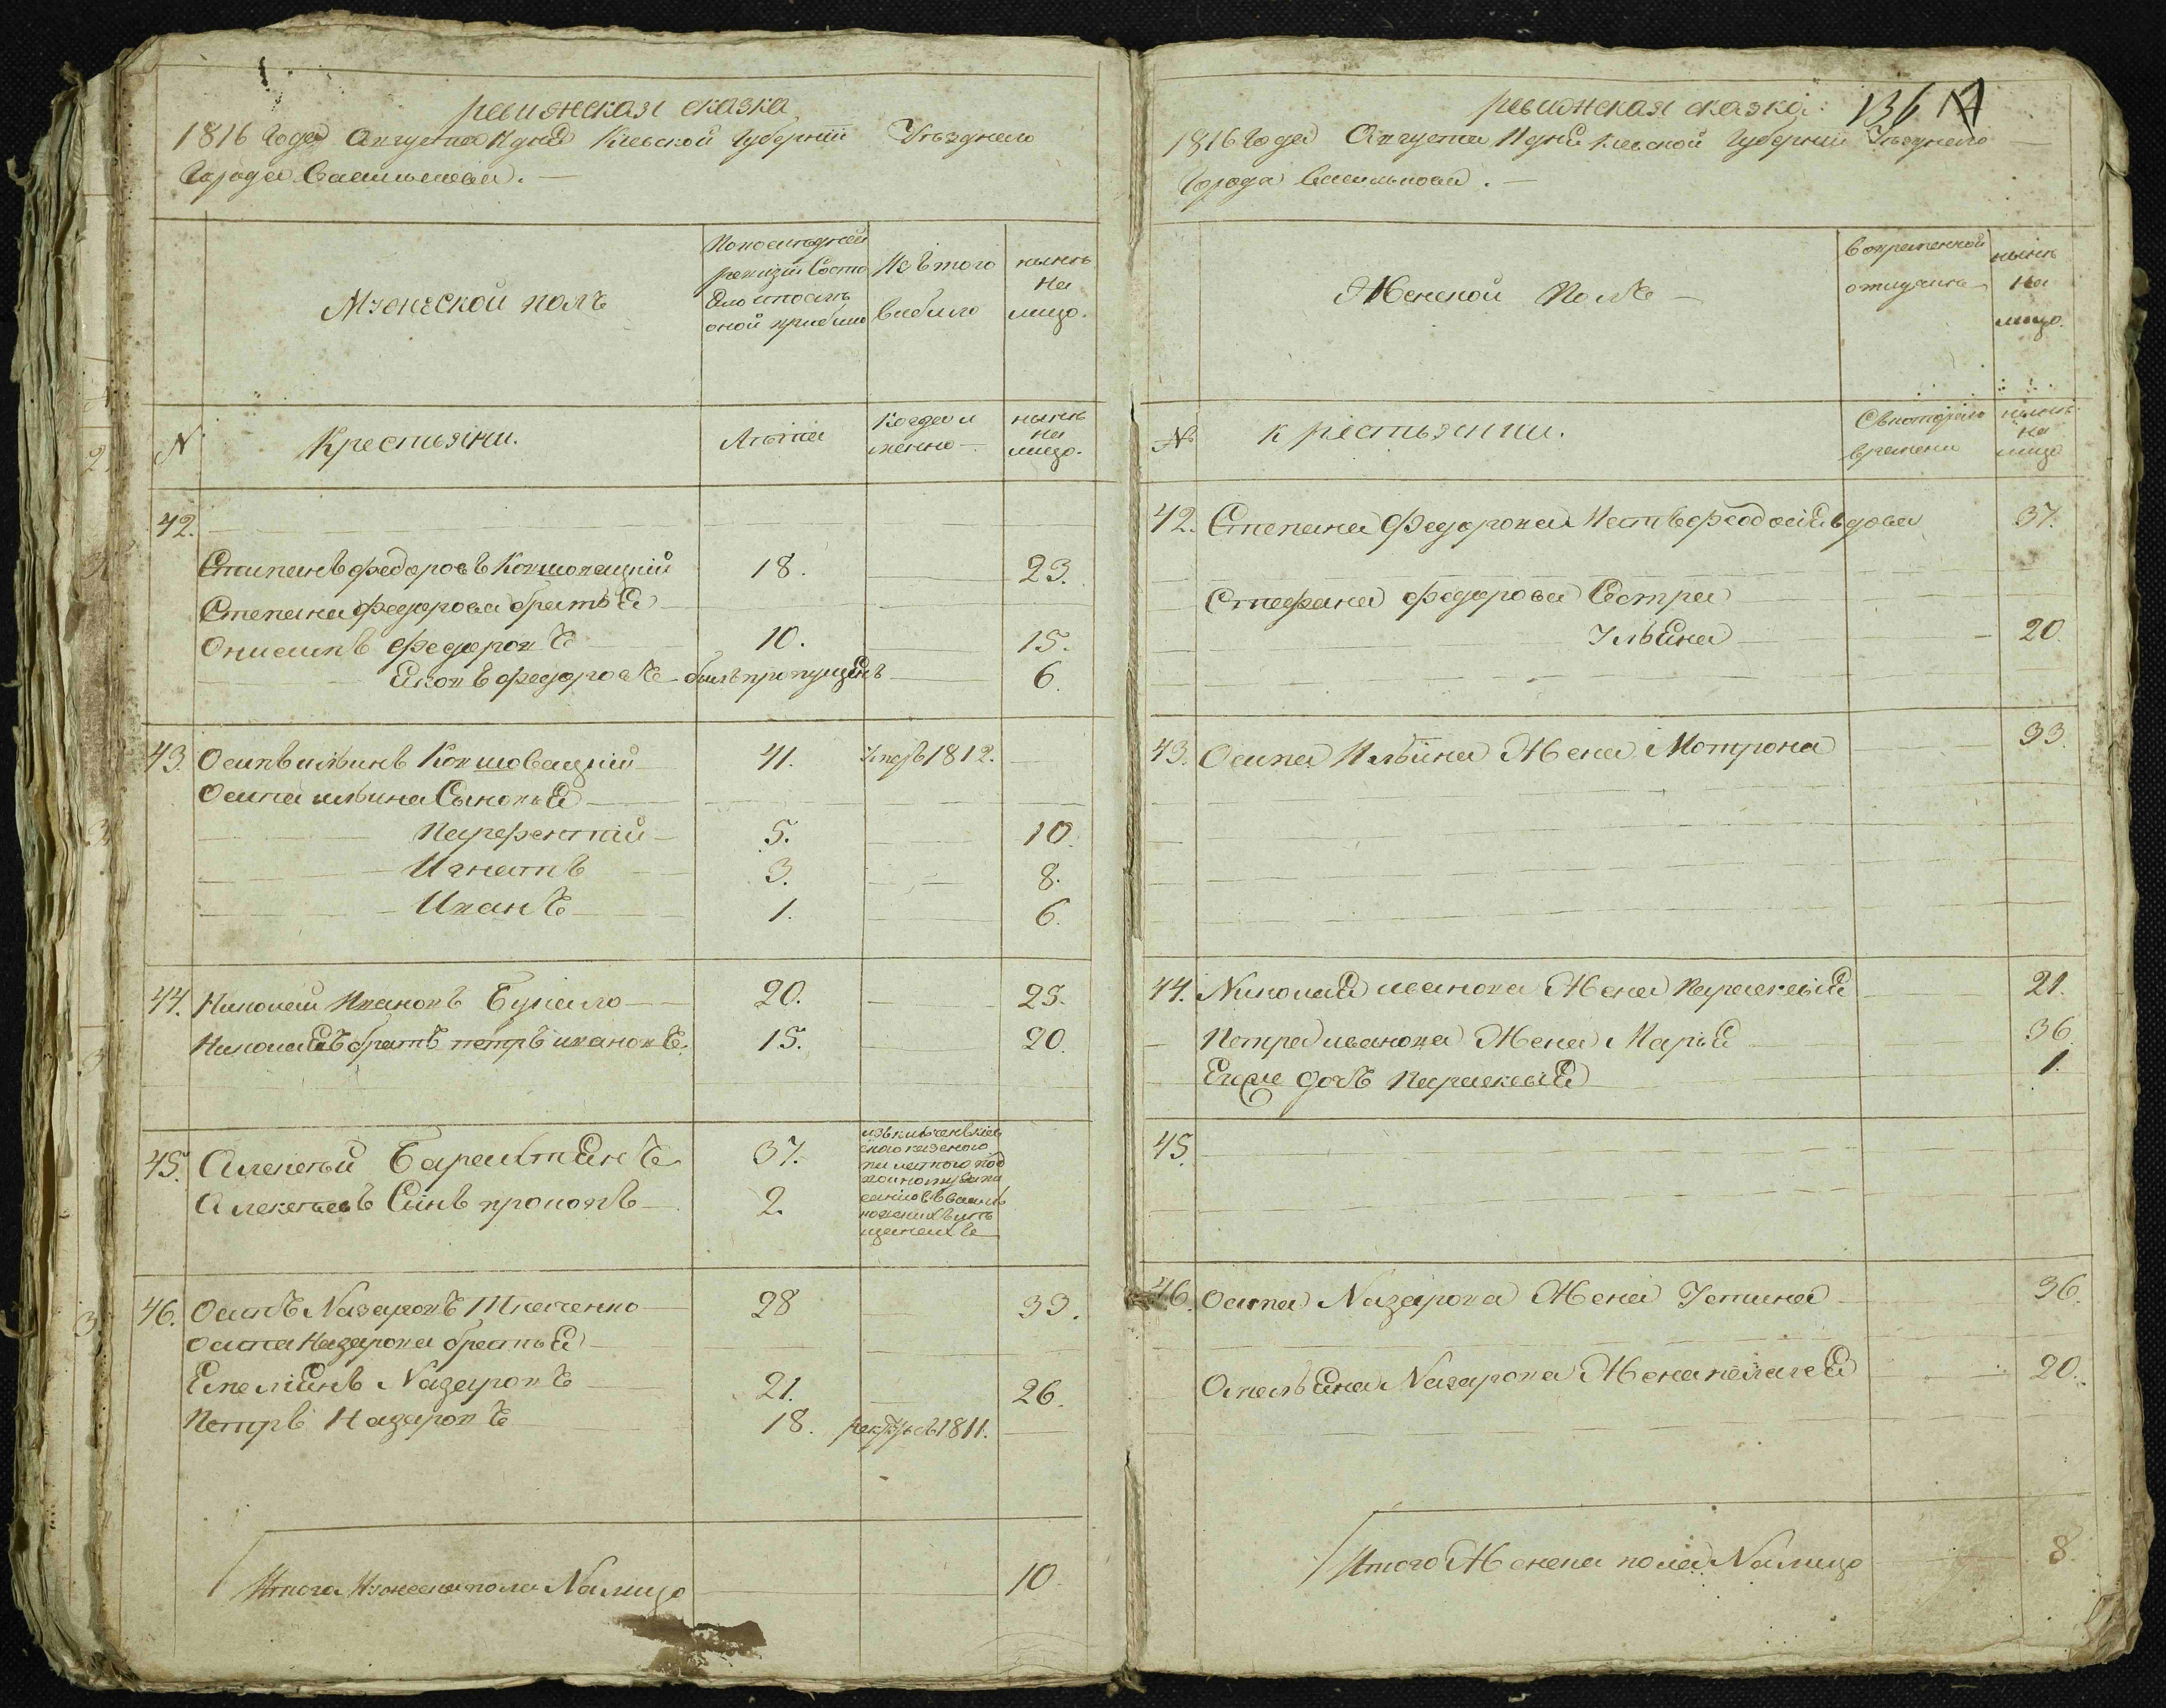 ревижская сказка
1816 Года Августа дня Киевской Губернии Уездного
Города Василькова. —
Мужеской полъ
По последней
ревизии Состо
яло и после
оной прибыло
Изъ того
выбыло
ныне
на
лицо.
N
Крестьяни.
Лета
Когда и
менно —
ныне
на
лицо.
42.
Степанъ федоровъ Ковшовацкий 18. 23.
Степана федорова братья
Онисимъ федоровъ 10. 15.
Яковъ федоровъ былъ пропущенъ 6.
43. Осипъ ильинъ Ковшовацкий 41. Умеръ 1812.
Осипа ильина Сыновья
Парфентий 5. 10.
Игнатъ 3. 8.
Иванъ 1. 6.
44. Николай Ивановъ Букало 20. 25.
Николаевъ братъ петръ ивановъ. 15. 20.
45. Алексей 37.
Алексеевъ Сынъ прокопъ 2.
46. Осипъ Назаровъ Ткаченко 28 33.
осипа Назарова братья
Емелiянъ Назаровъ 21. 26.
Петръ Назаровъ 18. рекрутъ въ 1811.
Итого Мужеска пола На лицо 10
136
ревижская сказка:
1816 Года Августа дня Киевской Губернии Уездного
Города Василькова. —
Женской Полъ —
во временной
отлучке
ныне
на
лицо.
N
крестьянки.
Съ которого
времени
ныне
на
лицо
42. Степана Федорова Мать феодосия вдова 37.
Стефана федорова Сестра
Ульяна 20.
43. Осипа Ильина Жена Мотрона 33
44. Николая иванова Жена Параскевия 21.
Петра иванова Жена Марья 36.
Ево дочь Параскевия 1.
45.
46. Осипа Назарова Жена Устина 36.
Омельяна Назарова Жена пелагея 20.
Итого Женска пола На лицо 8.